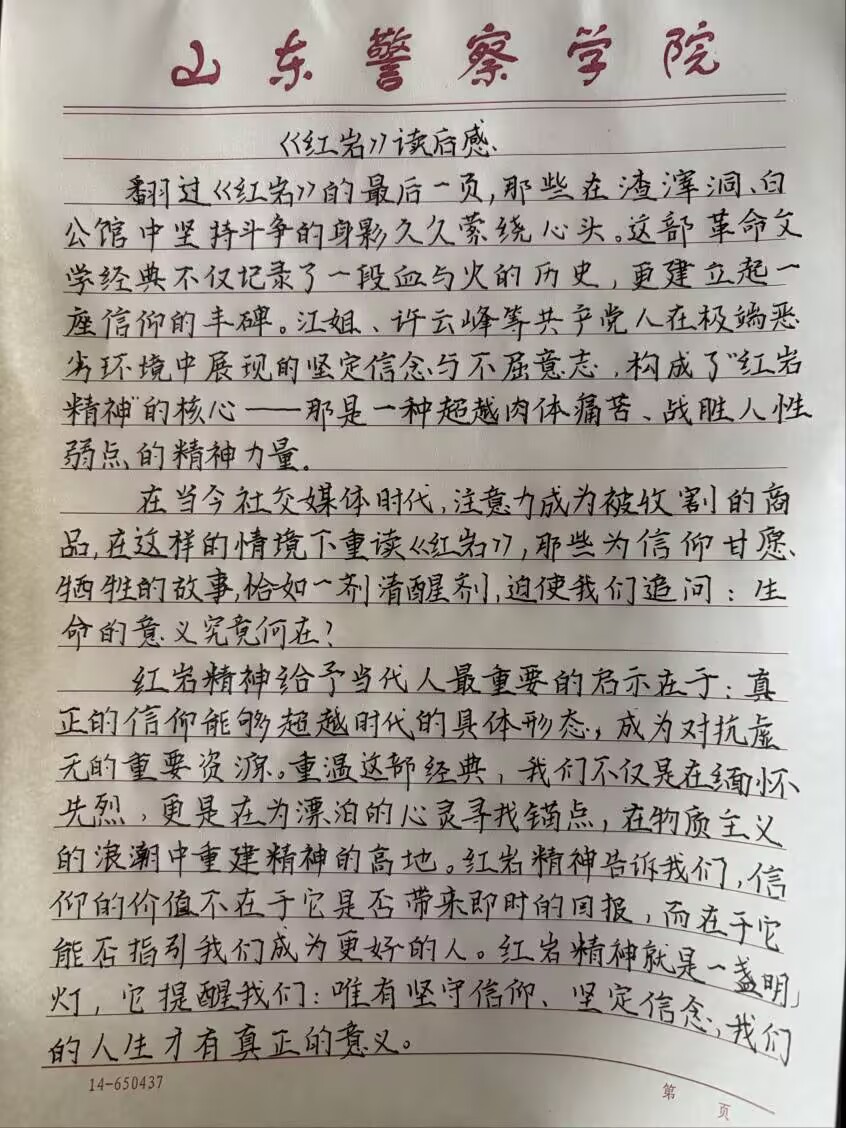 山东警察学院
《红岩》读后感
翻过《红岩》的最后一页,那些在渣滓洞、白
公馆中坚持斗争的身影久久萦绕心头。这部革命文
学经典不仅记录了一段血与火的历史,更建立起一
座信仰的丰碑。江姐、许云峰等共产党人在极端恶
劣环境中展现的坚定信念与不屈意志,构成了"红岩
精神"的核心——那是一种超越肉体痛苦、战胜人性
弱点的精神力量.
在当今社交媒体时代,注意力成为被收割的商
品,在这样的情境下重读《红岩》,那些为信仰甘愿、
牺牲的故事,恰如一剂清醒剂,迫使我们追问:生
命的意义究竟何在?
红岩精神给予当代人最重要的启示在于:真
正的信仰能够超越时代的具体形态,成为对抗虚
无的重要资源。重温这部经典,我们不仅是在缅怀
先烈,更是在为漂泊的心灵寻找锚点,在物质主义
的浪潮中重建精神的高地。红岩精神告诉我们,信
仰的价值不在于它是否带来即时的回报,而在于它
能否指引我们成为更好的人。红岩精神就是一盏明
灯,它提醒我们:唯有坚守信仰、坚定信念,我们
的人生才有真正的意义。
14-650437
第 页